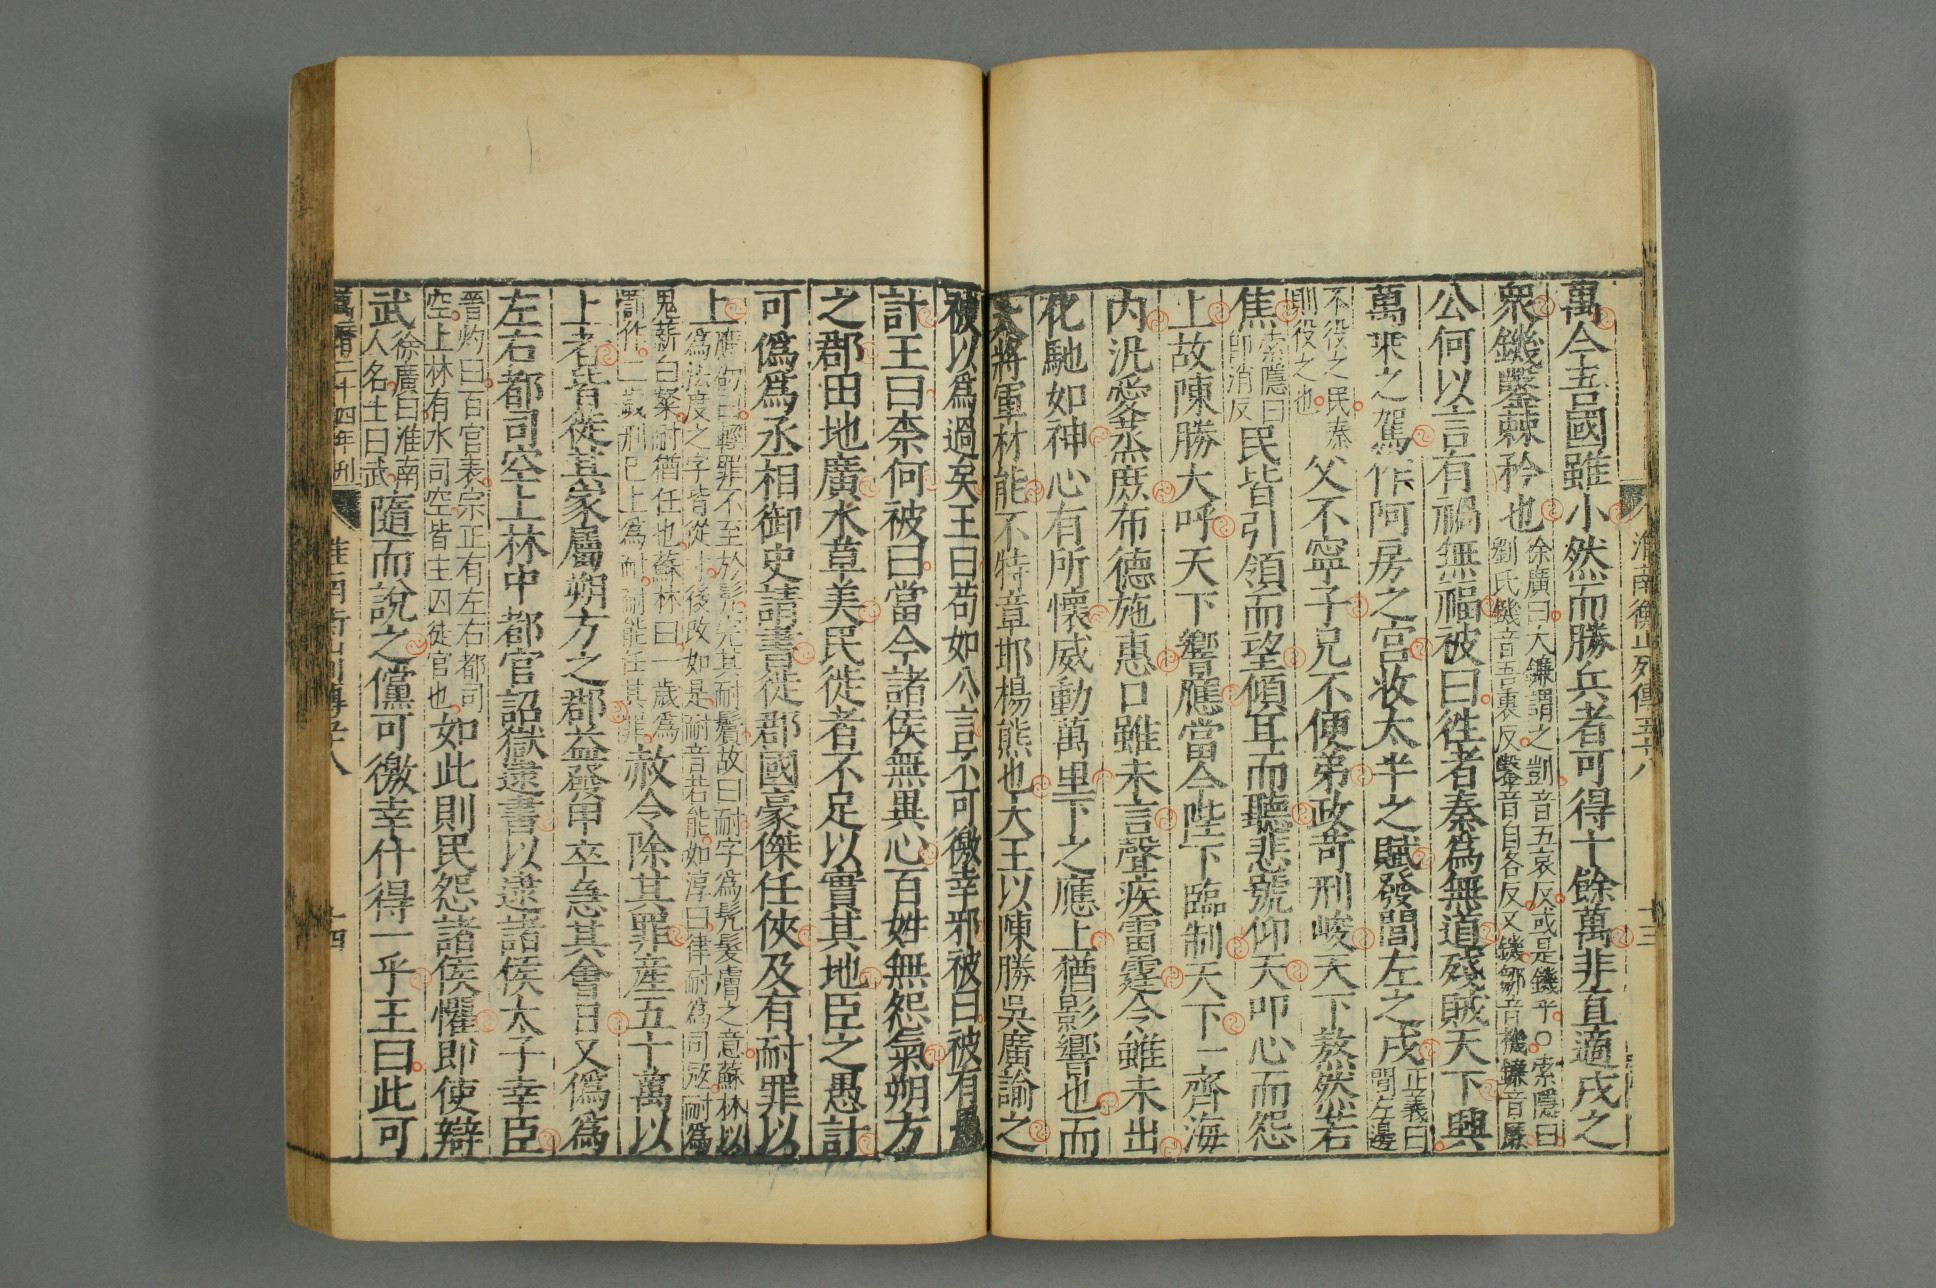 淮南衡山列傳五十八
十三
萬今吾國雖小然而勝兵者可得十餘萬非直適戍之
衆鐖鑿棘矜也徐廣曰大鐮謂之剴音五哀反或是鐖乎○索隱曰
劉氏鐖音吾裏反鑿音自各反又鐖鄒音機鐮音廉
公何以言有禍無福被曰徃者秦爲無道殘賊天下興
萬乘之駕作阿房之宮收太半之賦發閭左之戍正義曰閭左邊
不役之民秦則役之也父不寧子兄不便弟政苛刑峻天下熬然若
焦索隱曰即消反民皆引領而望傾耳而聽悲號仰天叩心而怨
上故陳勝大呼天下響應當今陛下臨制天下一齊海
内汎愛蒸庶布德施惠口雖未言聲疾雷霆令雖未出
化馳如神心有所懷威動萬里下之應上猶影響也而
大將軍材能不特章邯楊熊也大王以陳勝吳廣諭之
被以爲過矣王曰苟如公言不可徼幸邪被曰被有愚
計王曰柰何被曰當今諸侯無異心百姓無怨氣朔方
之郡田地廣水草美民徙者不足以實其地臣之愚計
可僞爲丞相御史請書徙郡國豪傑任俠及有耐罪以
上應劭曰輕罪不至於髡完其耐鬢故曰耐字爲髡髮膚之意蘇林以
爲法度之字皆從寸後改如是耐音若能如淳曰律耐爲司寇耐爲
鬼薪白粲耐猶任也蘇林曰一歲爲
罰作二歲刑已上爲耐耐能任其罪赦令除其罪産五十萬以
上者皆徙其家屬朔方之郡益發甲卒急其會日又僞爲
左右都司空上林中都官詔獄逮書以逮諸侯太子幸臣
晉灼曰百官表宗正有左右都司
空上林有水司空皆主囚徒官也如此則民怨諸侯懼即使辯
武徐廣曰淮南人名士曰武隨而說之儻可徼幸什得一乎王曰此可
萬曆二十四年刊
淮南衡山列傳五十八
十四